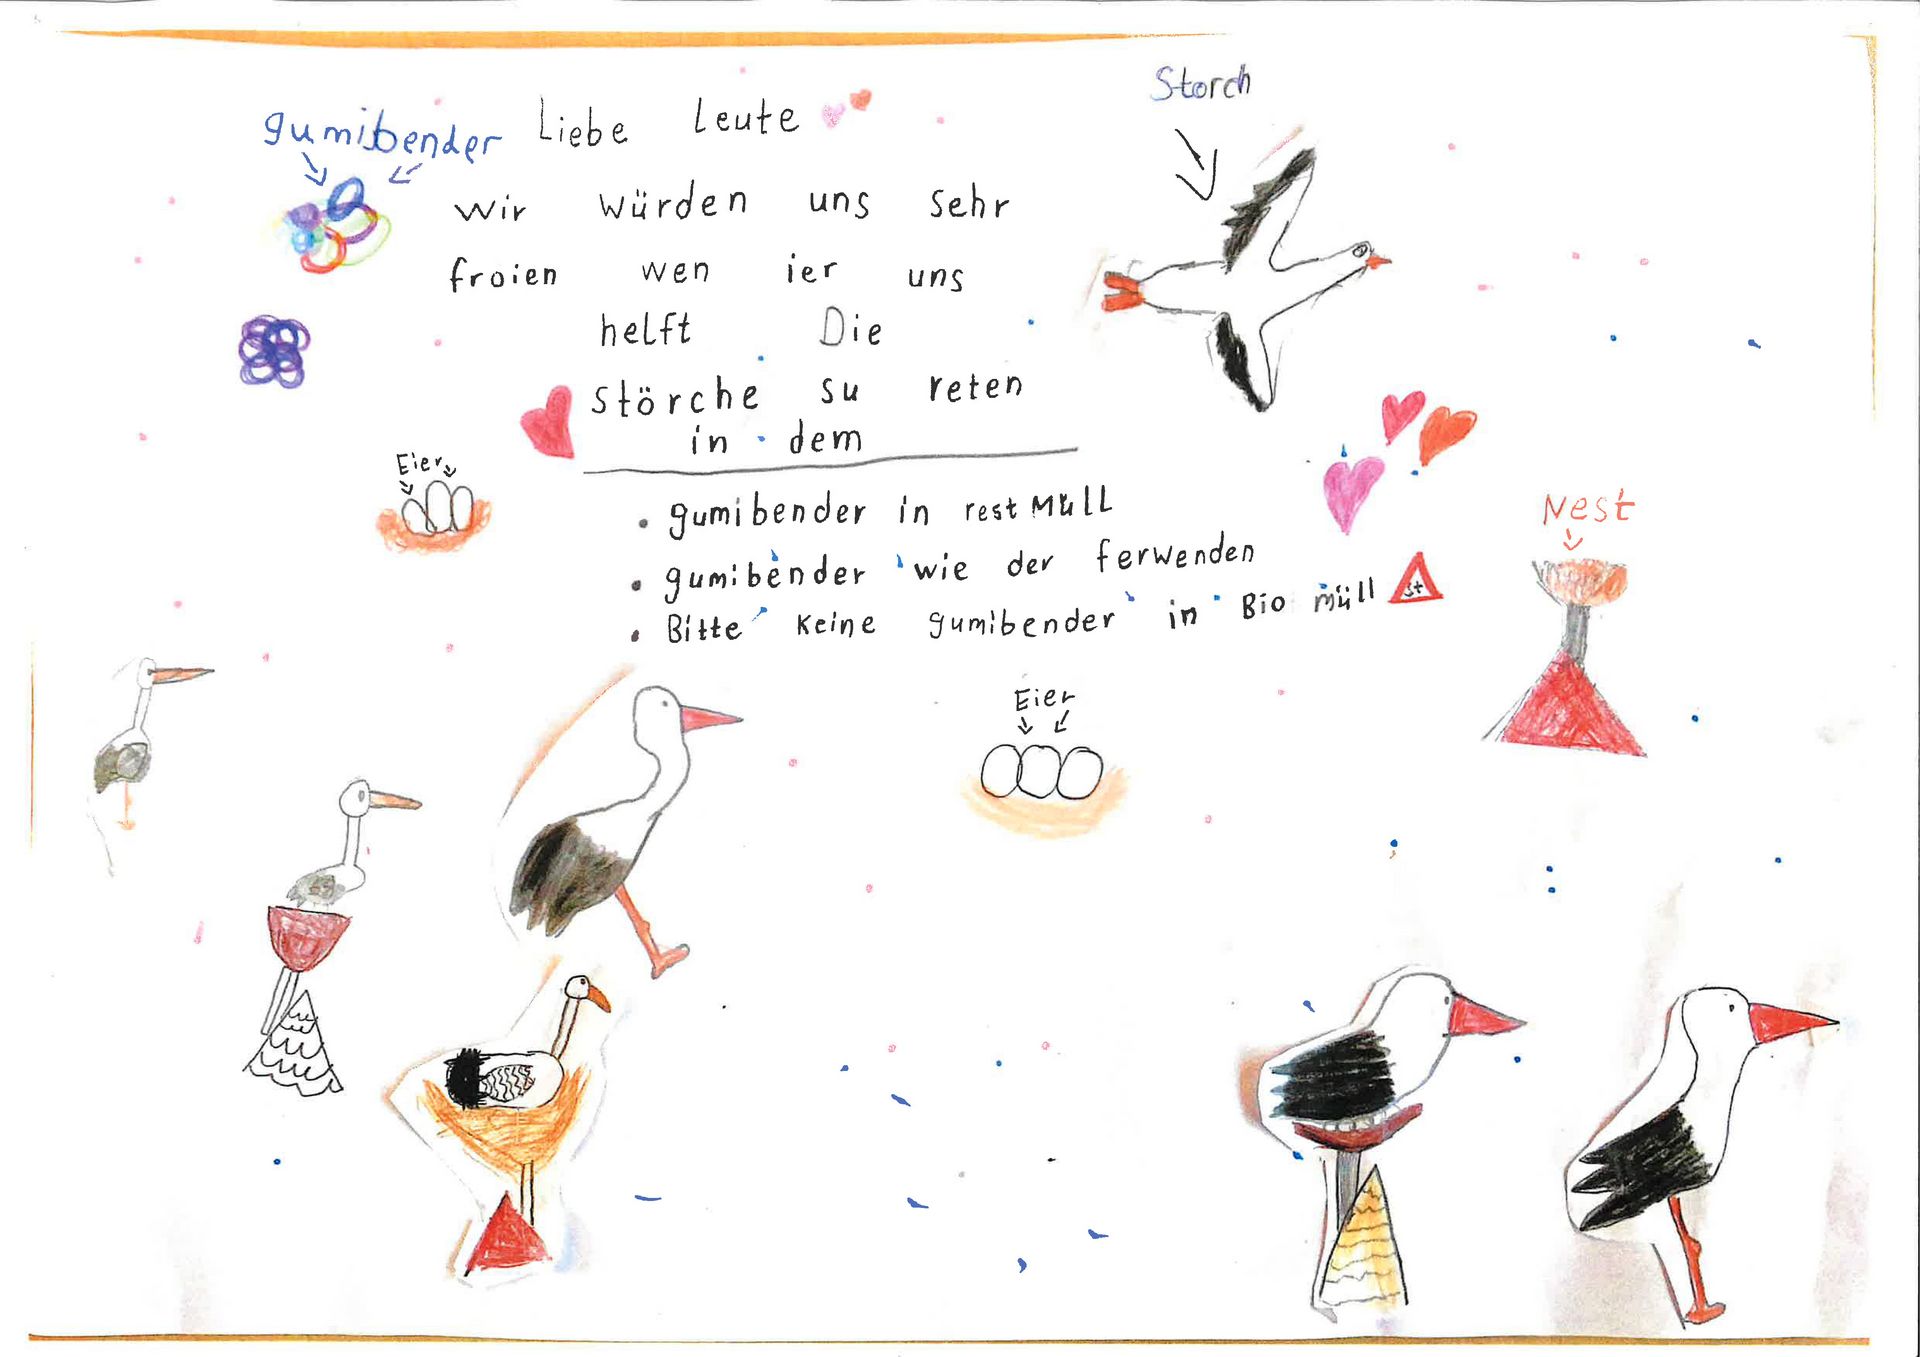 gumibender
Liebe Leute
Storch
Wir würden uns sehr
froien wen ier uns
helft Die
Störche su reten
in dem
Eier
• gumibender in rest Müll
• gumibender wie der ferwenden
• Bitte keine gumibender in Bio müll
St
Nest
Eier